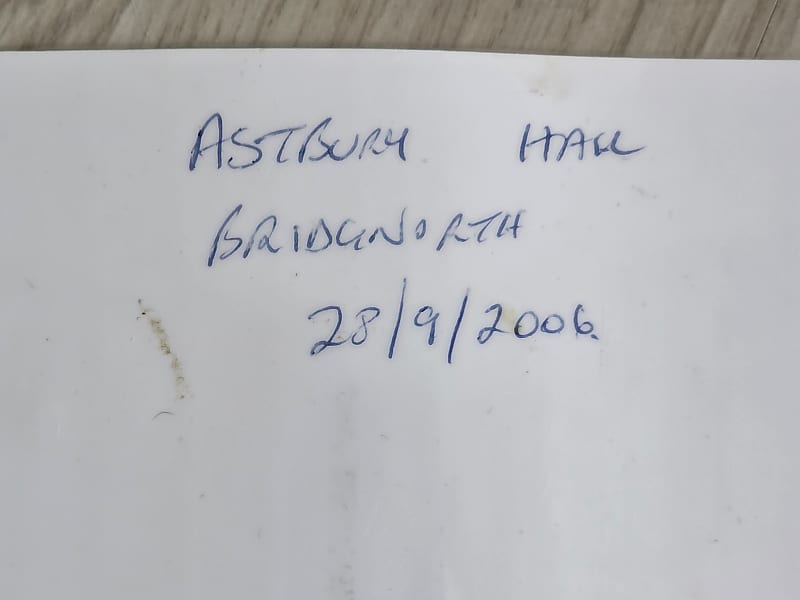 ASTBURY HALL
BRIDGNORTH
28/9/2006.